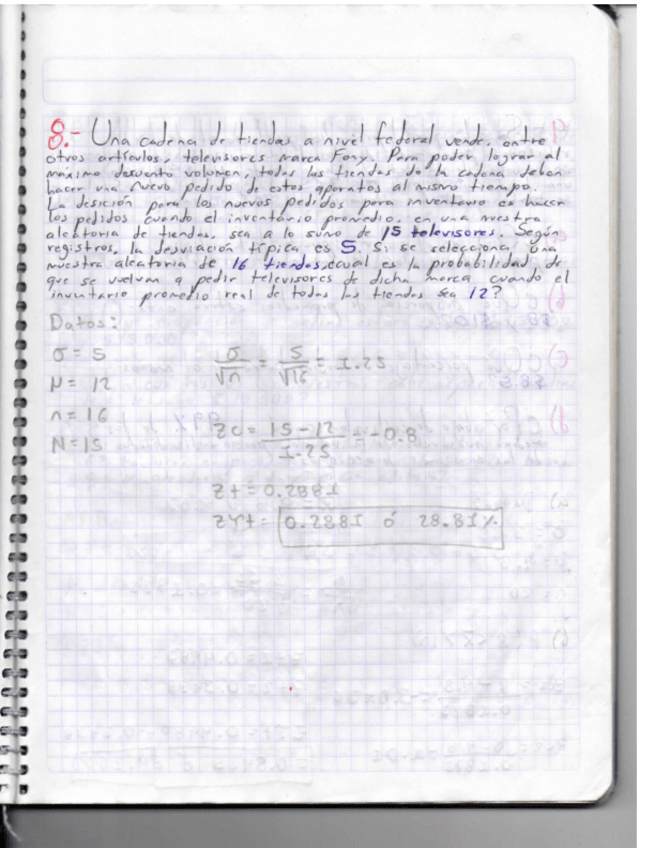 8.- Una cadena de tiendas a nivel federal vende, entre
otros artículos, televisores marca Fony. Para poder lograr al
máximo desuento volumen, todas las tiendas de la cadena deban
hacer una nuevo pedido de estos aparatos al mismo tiempo.
La desición para los nuevos pedidos para inventario es hacer
los pedidos cuando el inventário promedio, en una mestra
aleatoria de tiendas, sea a lo sumo de 15 televisores. Según
registros, la desviación típica es 5. Si se selecciona una
muestra aleatoria de 16 tiendas, ¿cual es la probabilidad de
que se vuelvan a pedir televisores de dicha marca cuando el
inventario promedio real de todas las tiendas sea 12?
Datos:
σ = 5
σ/√n = 5/√16 = 1.25
μ = 12
n = 16
ZC = 15-12/1.25 = -0.8
N = 15
Zt = 0.2881
ZYt = 0.2881 ó 28.81%